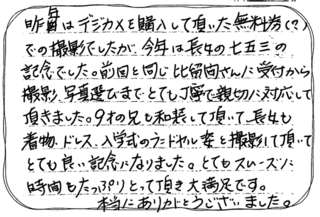 昨年はデジカメを購入して頂いた無料券(?)
での撮影でしたが、今年は長女の七五三の
記念でした。前回と同じ比留間さんに受付から
撮影、写真選びまでとても丁寧で親切に対応して
頂きました。9才の兄も和装して頂いて、長女も
着物、ドレス、入学式のコードル姿と撮影して頂いて
とても良い記念になりました。とてもスムーズに
時間もたっぷりとって頂き大満足です。
本当にありがとうございました。